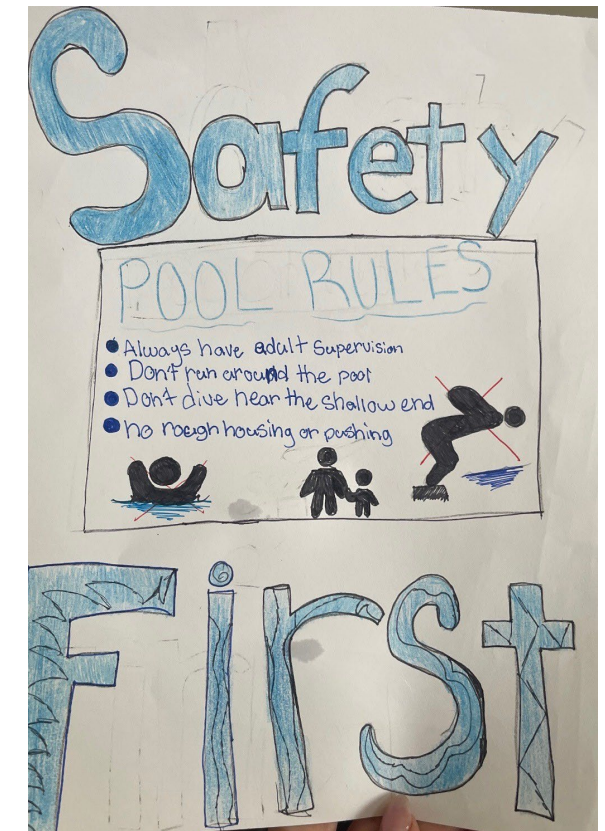 Safety
POOL RULES
Always have adult Supervision
Don't run around the pool
Don't dive near the shallow end
no rough housing or pushing
First